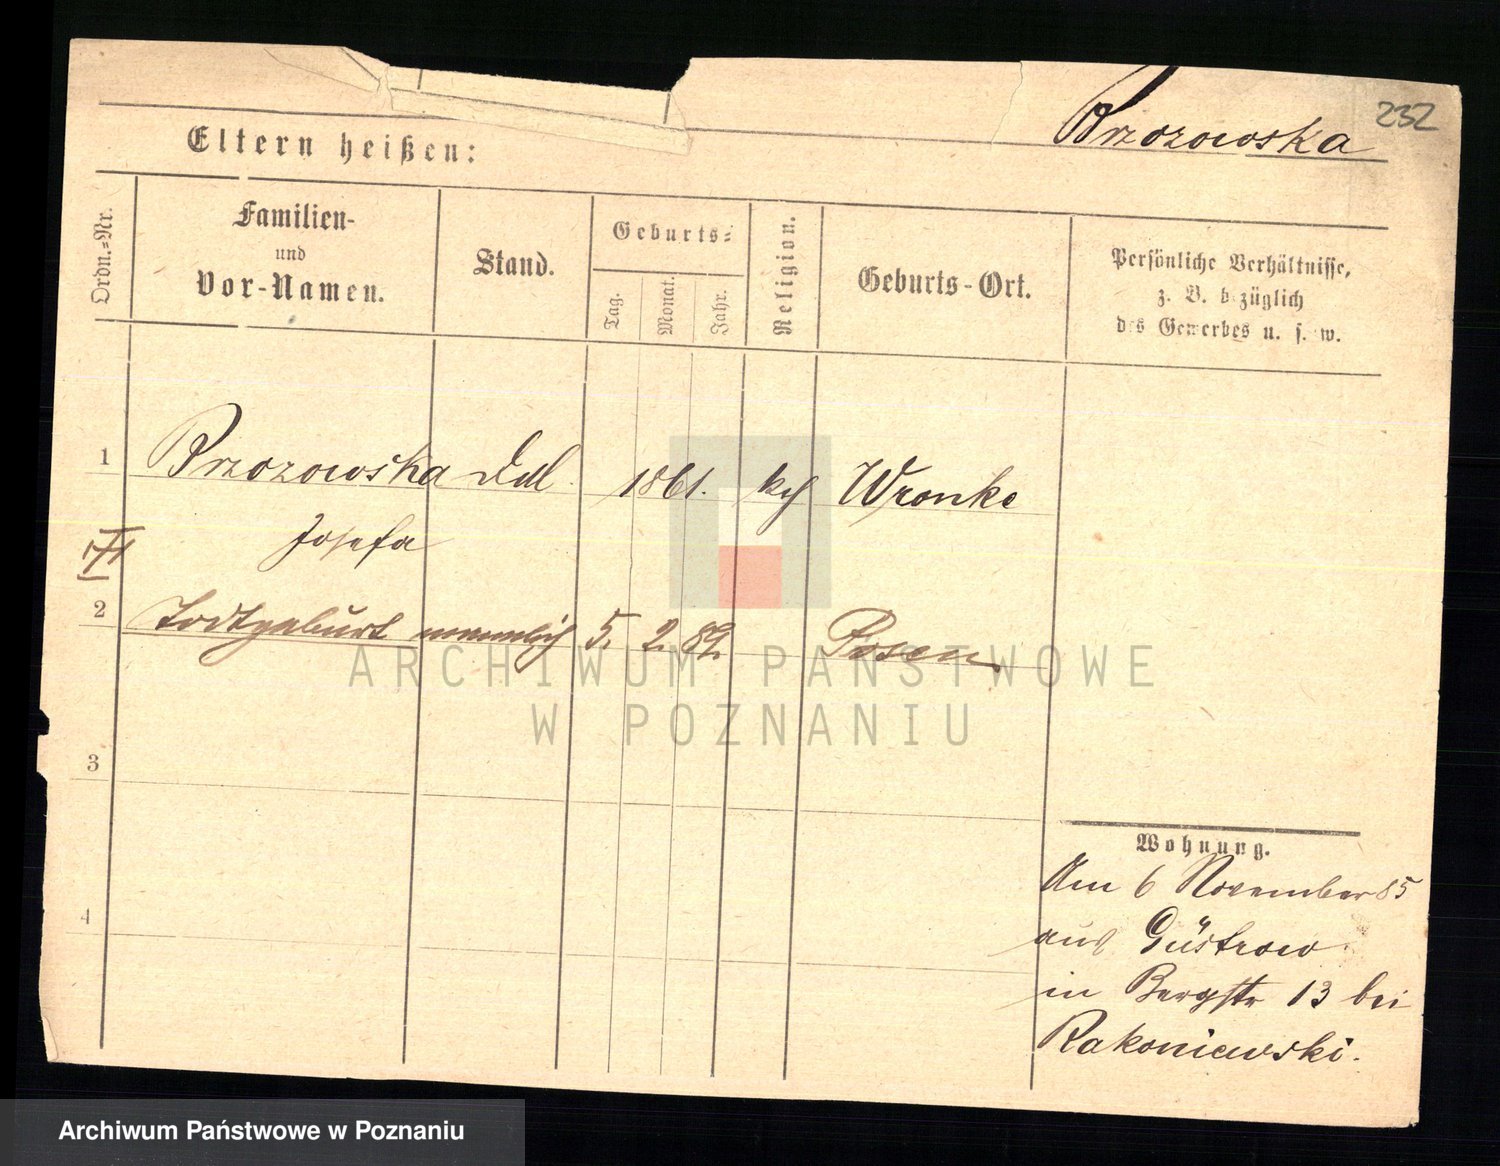 232
Brzozowska
Eltern heißen:
Ordn.=Nr.
Familien-
und
Vor-Namen.
Stand.
Geburts=
Tag.
Monat.
Jahr.
Religion.
Geburts-Ort.
Persönliche Verhältnisse,
z. B. bezüglich
des Gewerbes u. s. w.
1 Brzozowska 1861. kth Wronke
Josefa
2 Todtgeburt männlich 5. 2. Posen
ARCHIWUM PAŃSTWOWE
W POZNANIU
3
Wohnung.
Am 6 November 85
aus Güstrow
in Bergstr 13 bei
Rakoniewski.
4
Archiwum Państwowe w Poznaniu